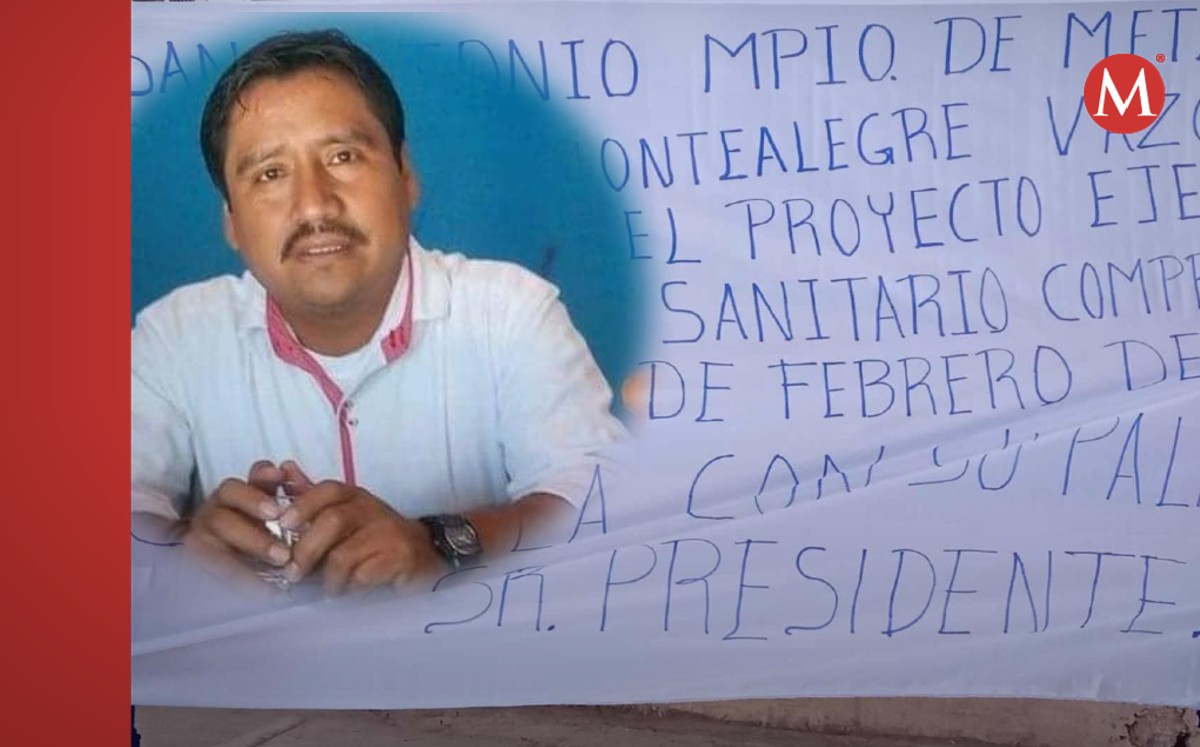 M
NIO MPIO. DE MET
ONTEALEGRE
EL PROYECTO EJE
SANITARIO COMPR
DE FEBRERO DE
A CON SU PAL
SR. PRESIDENTE.